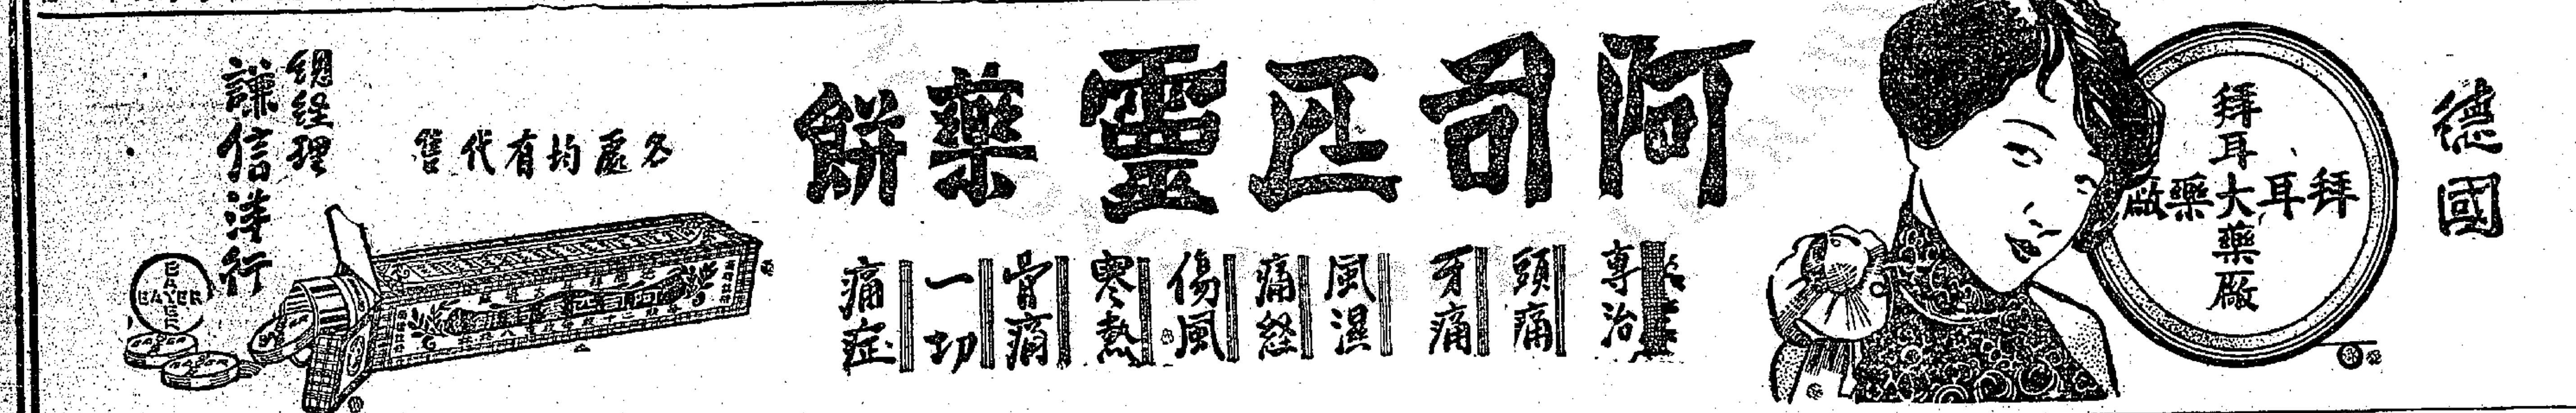 德國
拜耳大藥廠
拜耳大藥廠
阿司匹靈藥餅
專治
頭痛
牙痛
風濕
痛經
傷風
寒熱
骨痛
一切
痛症
各處均有代售
總經理
謙信洋行
BAYER
BAYER
阿司匹